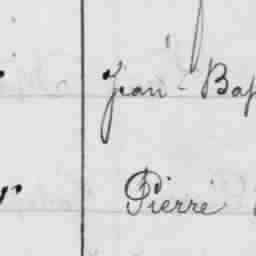 Jean-Bap
Pierre